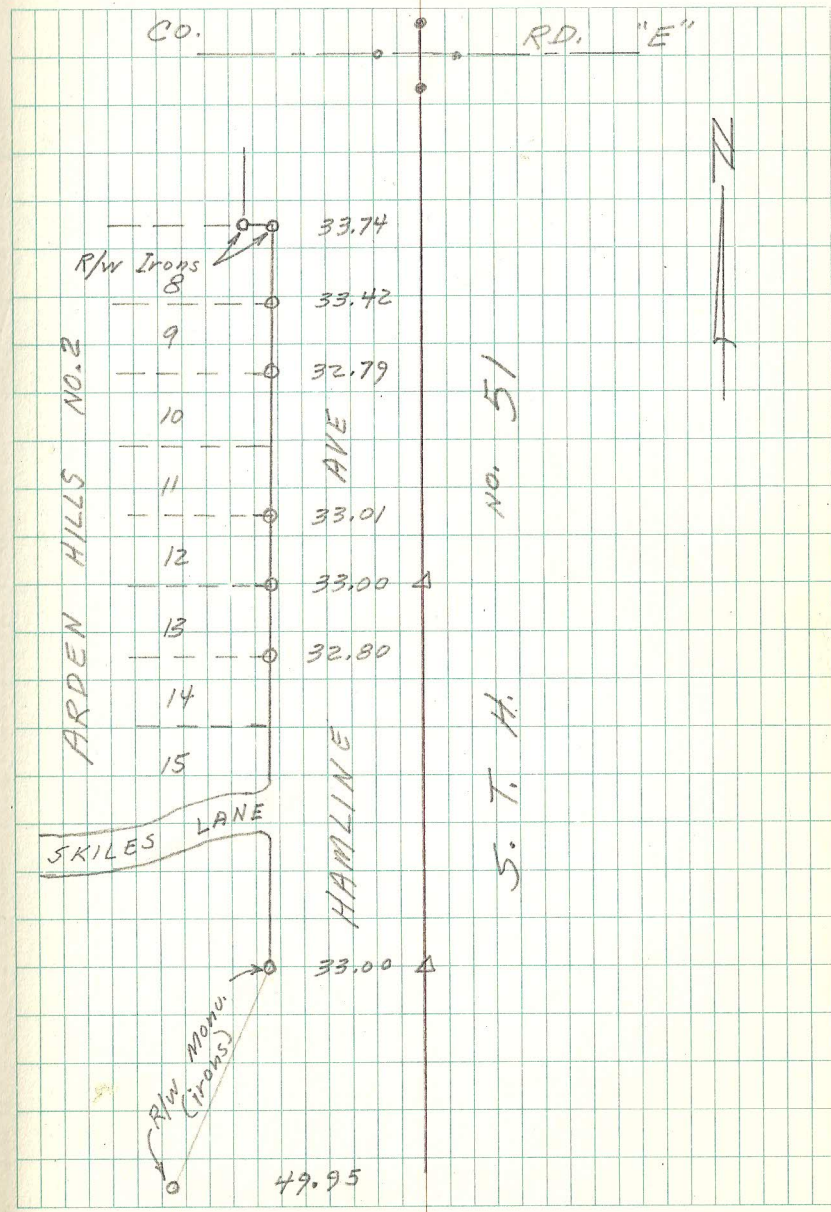 CO. RD. "E"
N
33.74
R/W Irons
8
33.42
9
32.79
10
11
33.01
12
33.00
13
32.80
14
15
ARDEN HILLS NO.2
HAMLINE AVE
S. T. H. NO. 51
SKILES LANE
33.00
R/W Monu.
(irons)
49.95